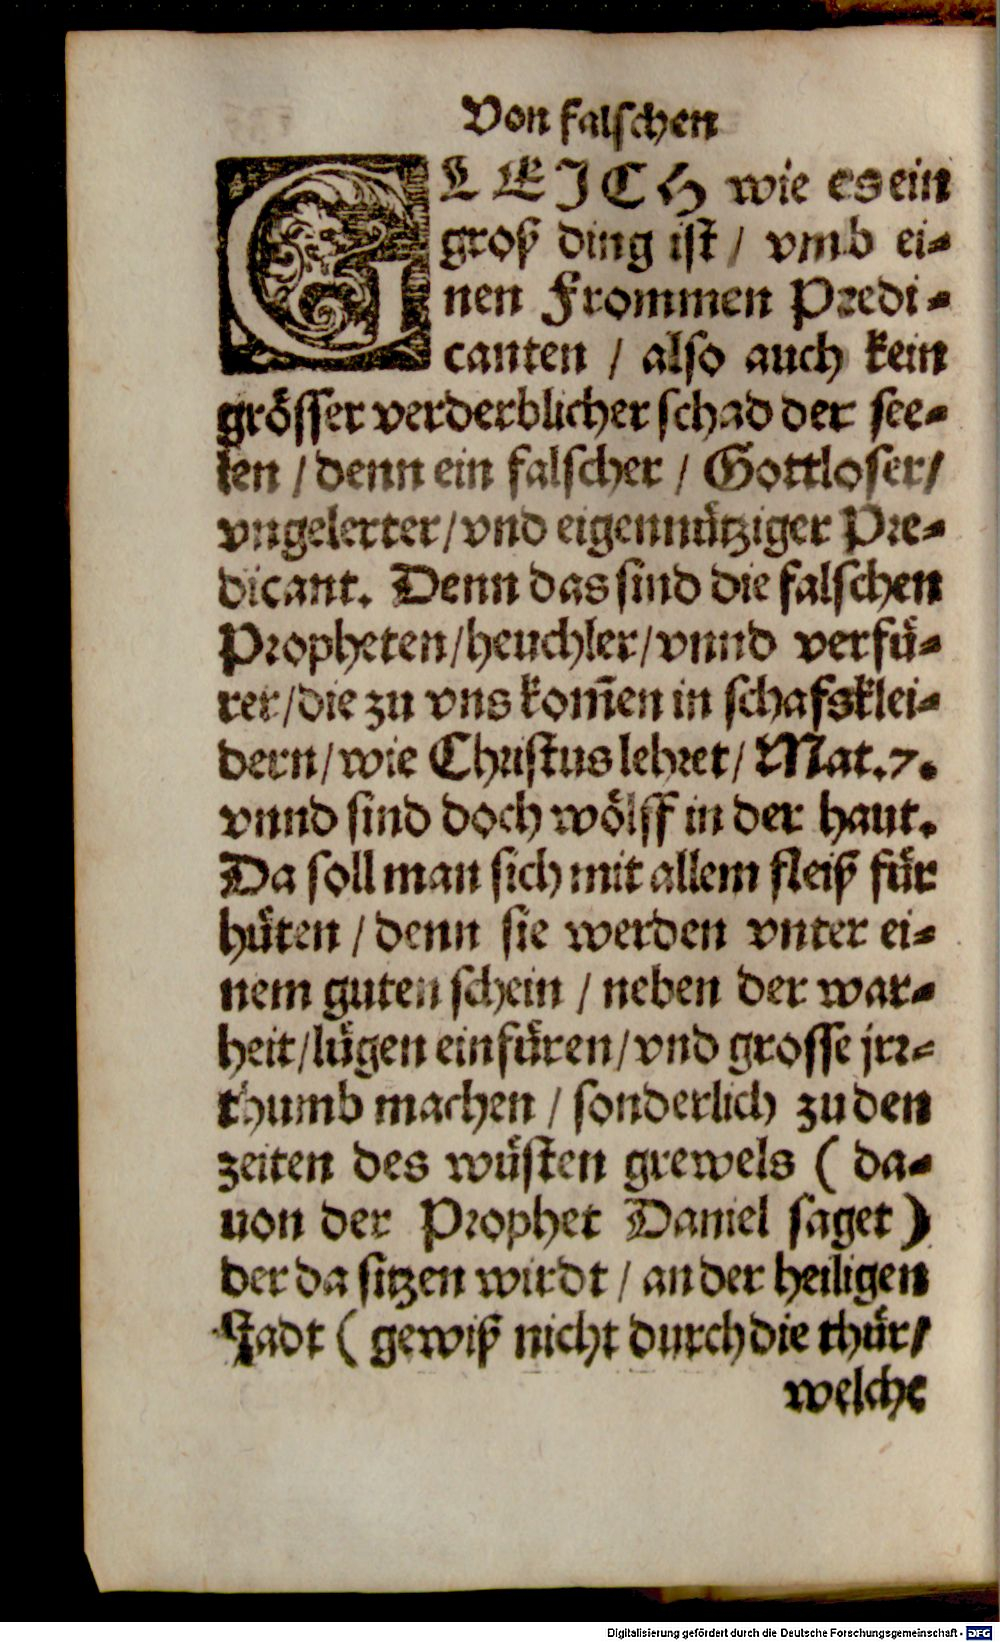 Von falschen
GLEICH wie es ein
groß ding ist / vmb ei⸗
nen Frommen Predi⸗
canten / also auch kein
grösser verderblicher schad der see⸗
len / denn ein falscher / Gottloser /
vngelerter / vnd eigennütziger Pre⸗
dicant. Denn das sind die falschen
Propheten / heuchler / vnnd verfü⸗
rer / die zu vns kom̃en in schafsklei⸗
dern / wie Christus lehret / Mat. 7.
vnnd sind doch wölff in der haut.
Da soll man sich mit allem fleiß für
hüten / denn sie werden vnter ei⸗
nem guten schein / neben der war⸗
heit / lügen einfüren / vnd grosse jrr⸗
thumb machen / sonderlich zu den
zeiten des wüsten grewels ( da⸗
uon der Prophet Daniel saget )
der da sitzen wirdt / an der heiligen
stadt ( gewiß nicht durch die thür /
welche
Digitalisierung gefördert durch die Deutsche Forschungsgemeinschaft - DFG